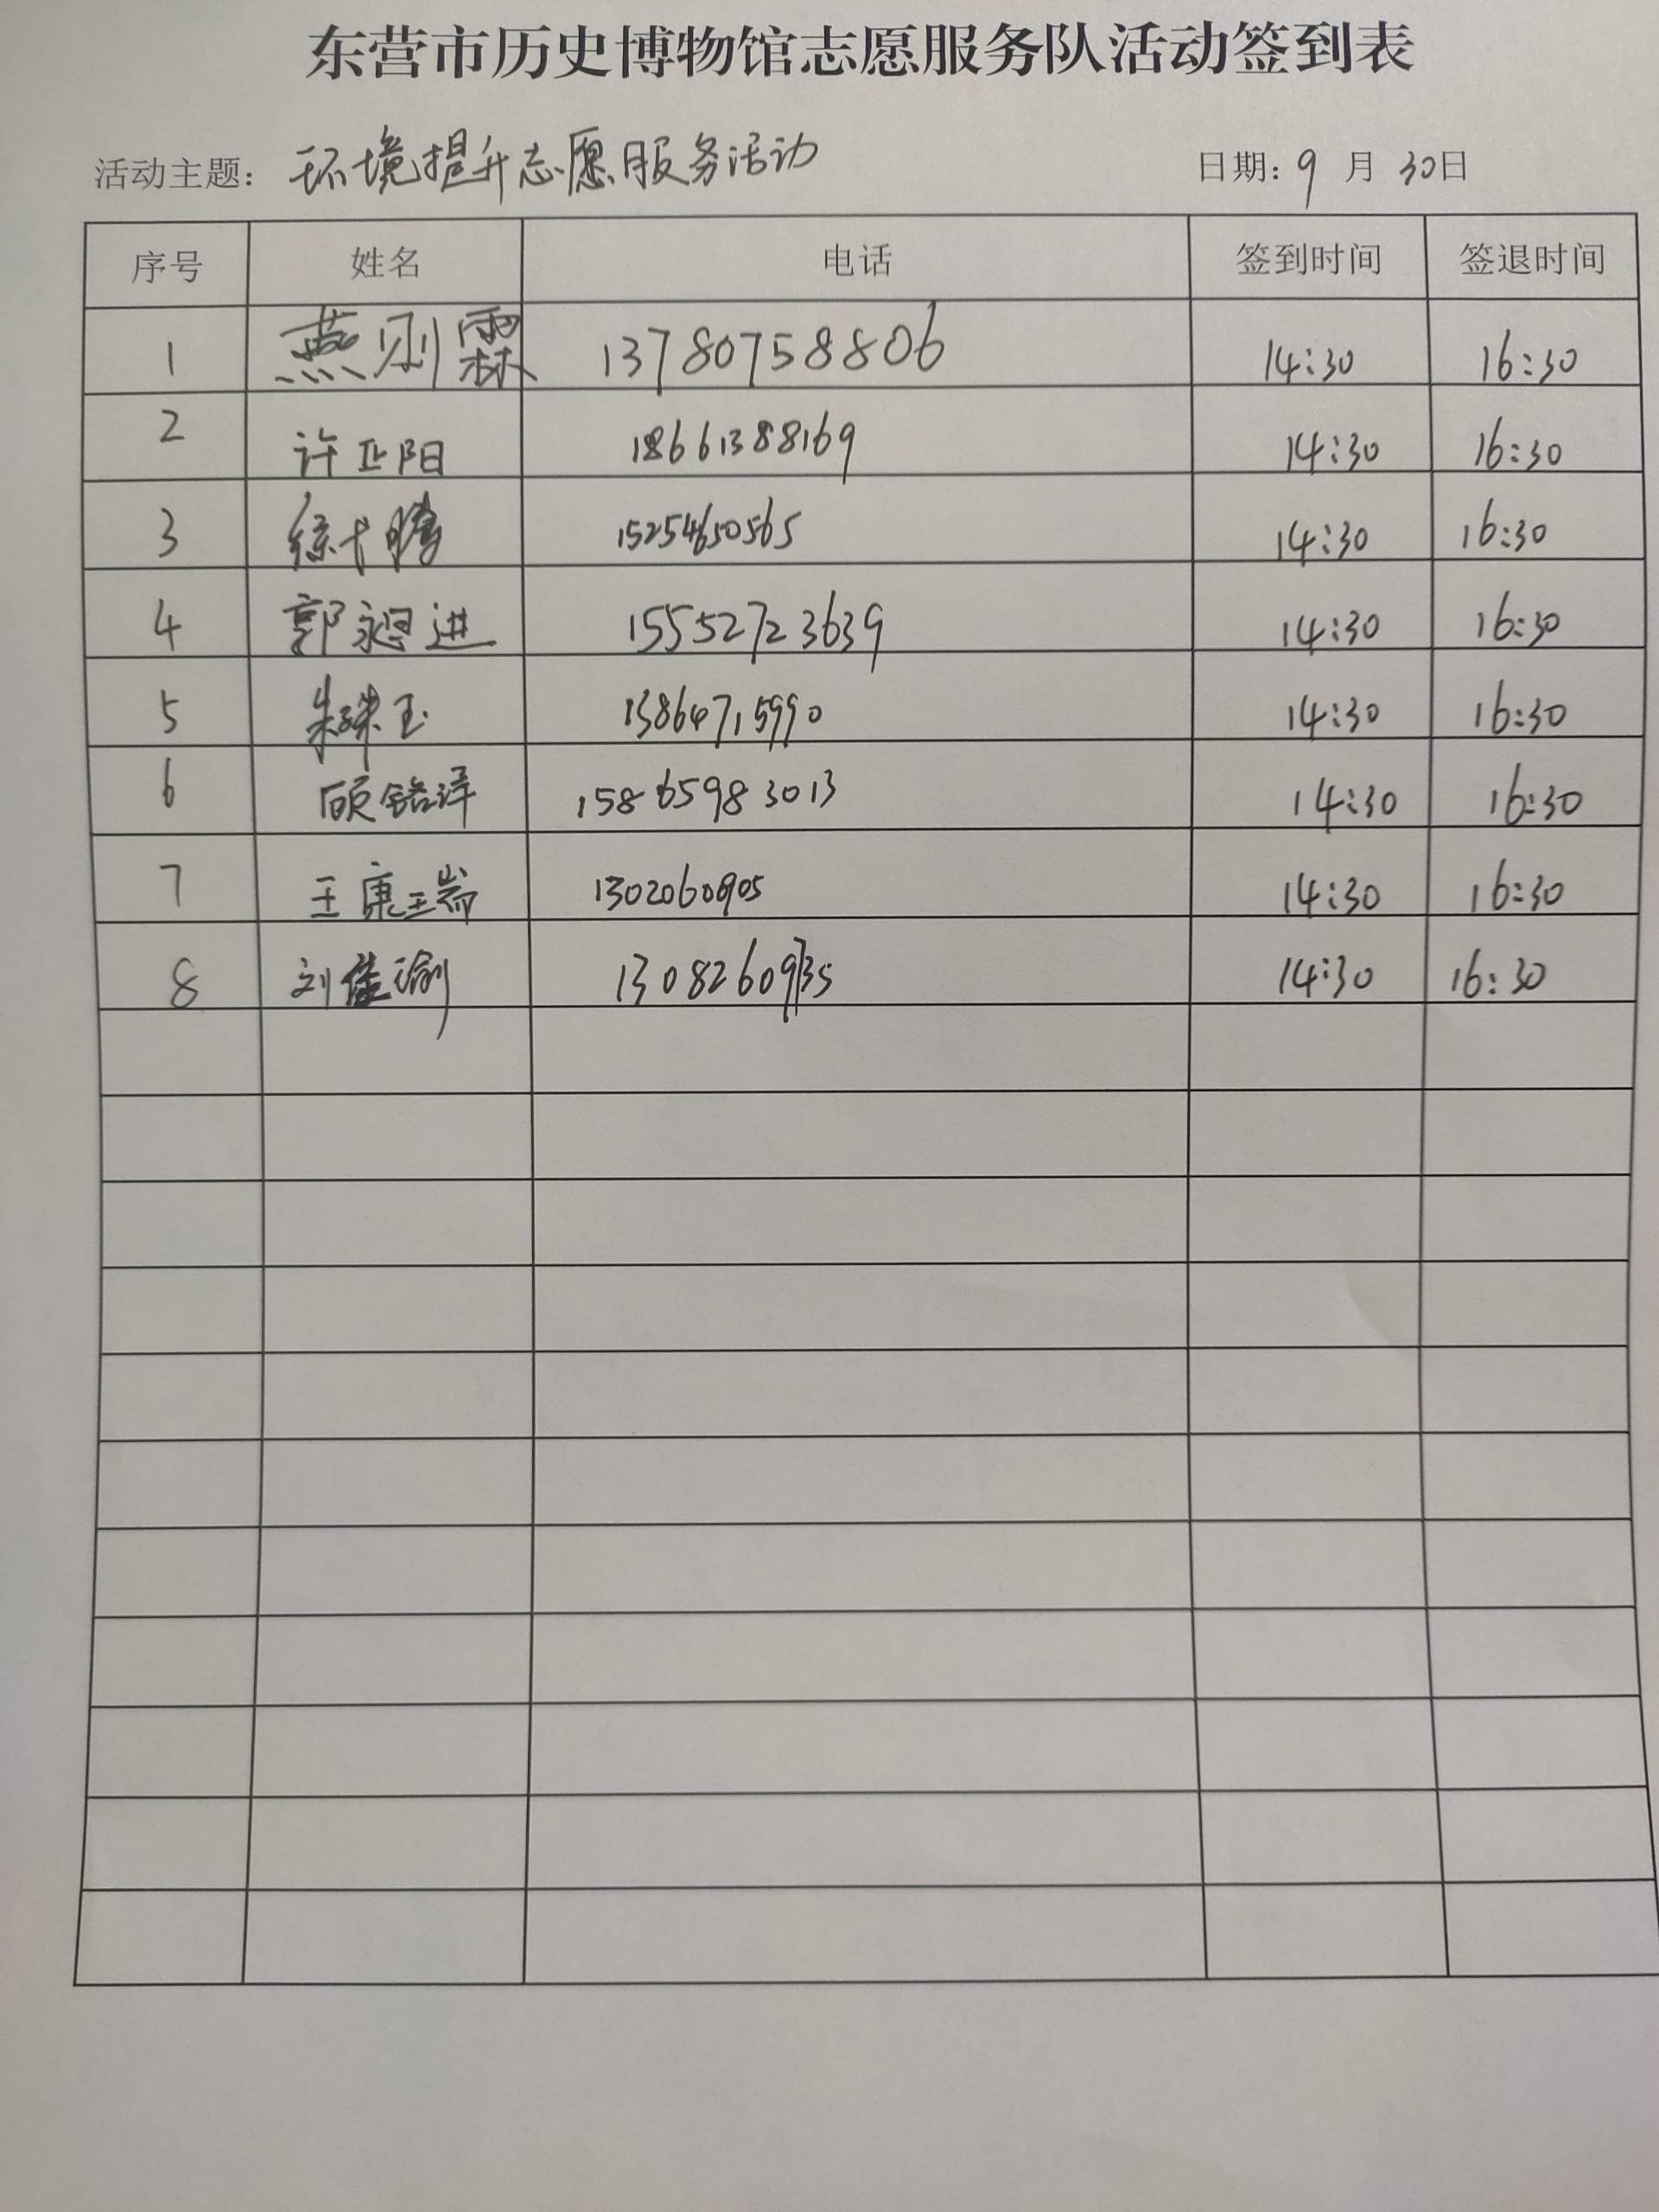 东营市历史博物馆志愿服务队活动签到表
活动主题: 环境提升志愿服务活动 日期: 9 月 30日
序号 姓名 电话 签到时间 签退时间
1 燕刚霖 13780758806 14:30 16:30
2 许正阳 18661388169 14:30 16:30
3 15254650565 14:30 16:30
4 15552723639 14:30 16:30
5 朱珠玉 13864715990 14:30 16:30
6 顾铭泽 15865983013 14:30 16:30
7 王康瑞 1302060905 14:30 16:30
8 刘佳瑜 14:30 16:30